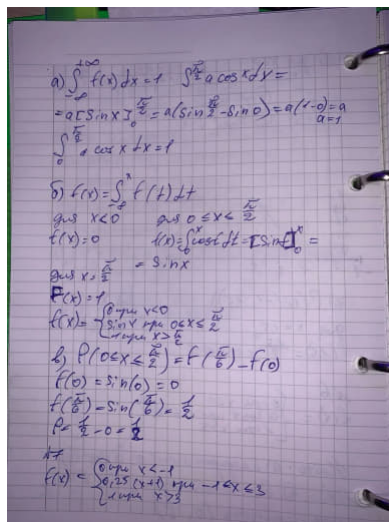 а) ∫_{-∞}^{+∞} f(x)dx=1 ∫_0^{π/2} a cosxdx=
=a[sinx]_0^{π/2}=a(sin π/2-sin0)=a(1-0)=a
a=1
∫_0^{π/2} cosxdx=1
б) f(x)=∫_{-∞}^x f(t)dt
для x<0 для 0≤x≤ π/2
f(x)=0 f(x)=∫_0^x costdt=[sint]_0^x=
=sinx
для x > π/2
F(x)=1
f(x)={0 при x<0
sinx при 0≤x≤ π/2
1 при x> π/2
в) P(0≤x≤ π/2)=f(π/6)-f(0)
f(0)=sin(0)=0
f(π/6)=sin(π/6)= 1/2
P= 1/2 -0= 1/2
f(x)={0 при x<-1
0,25(x+1) при -1≤x≤3
1 при x>3